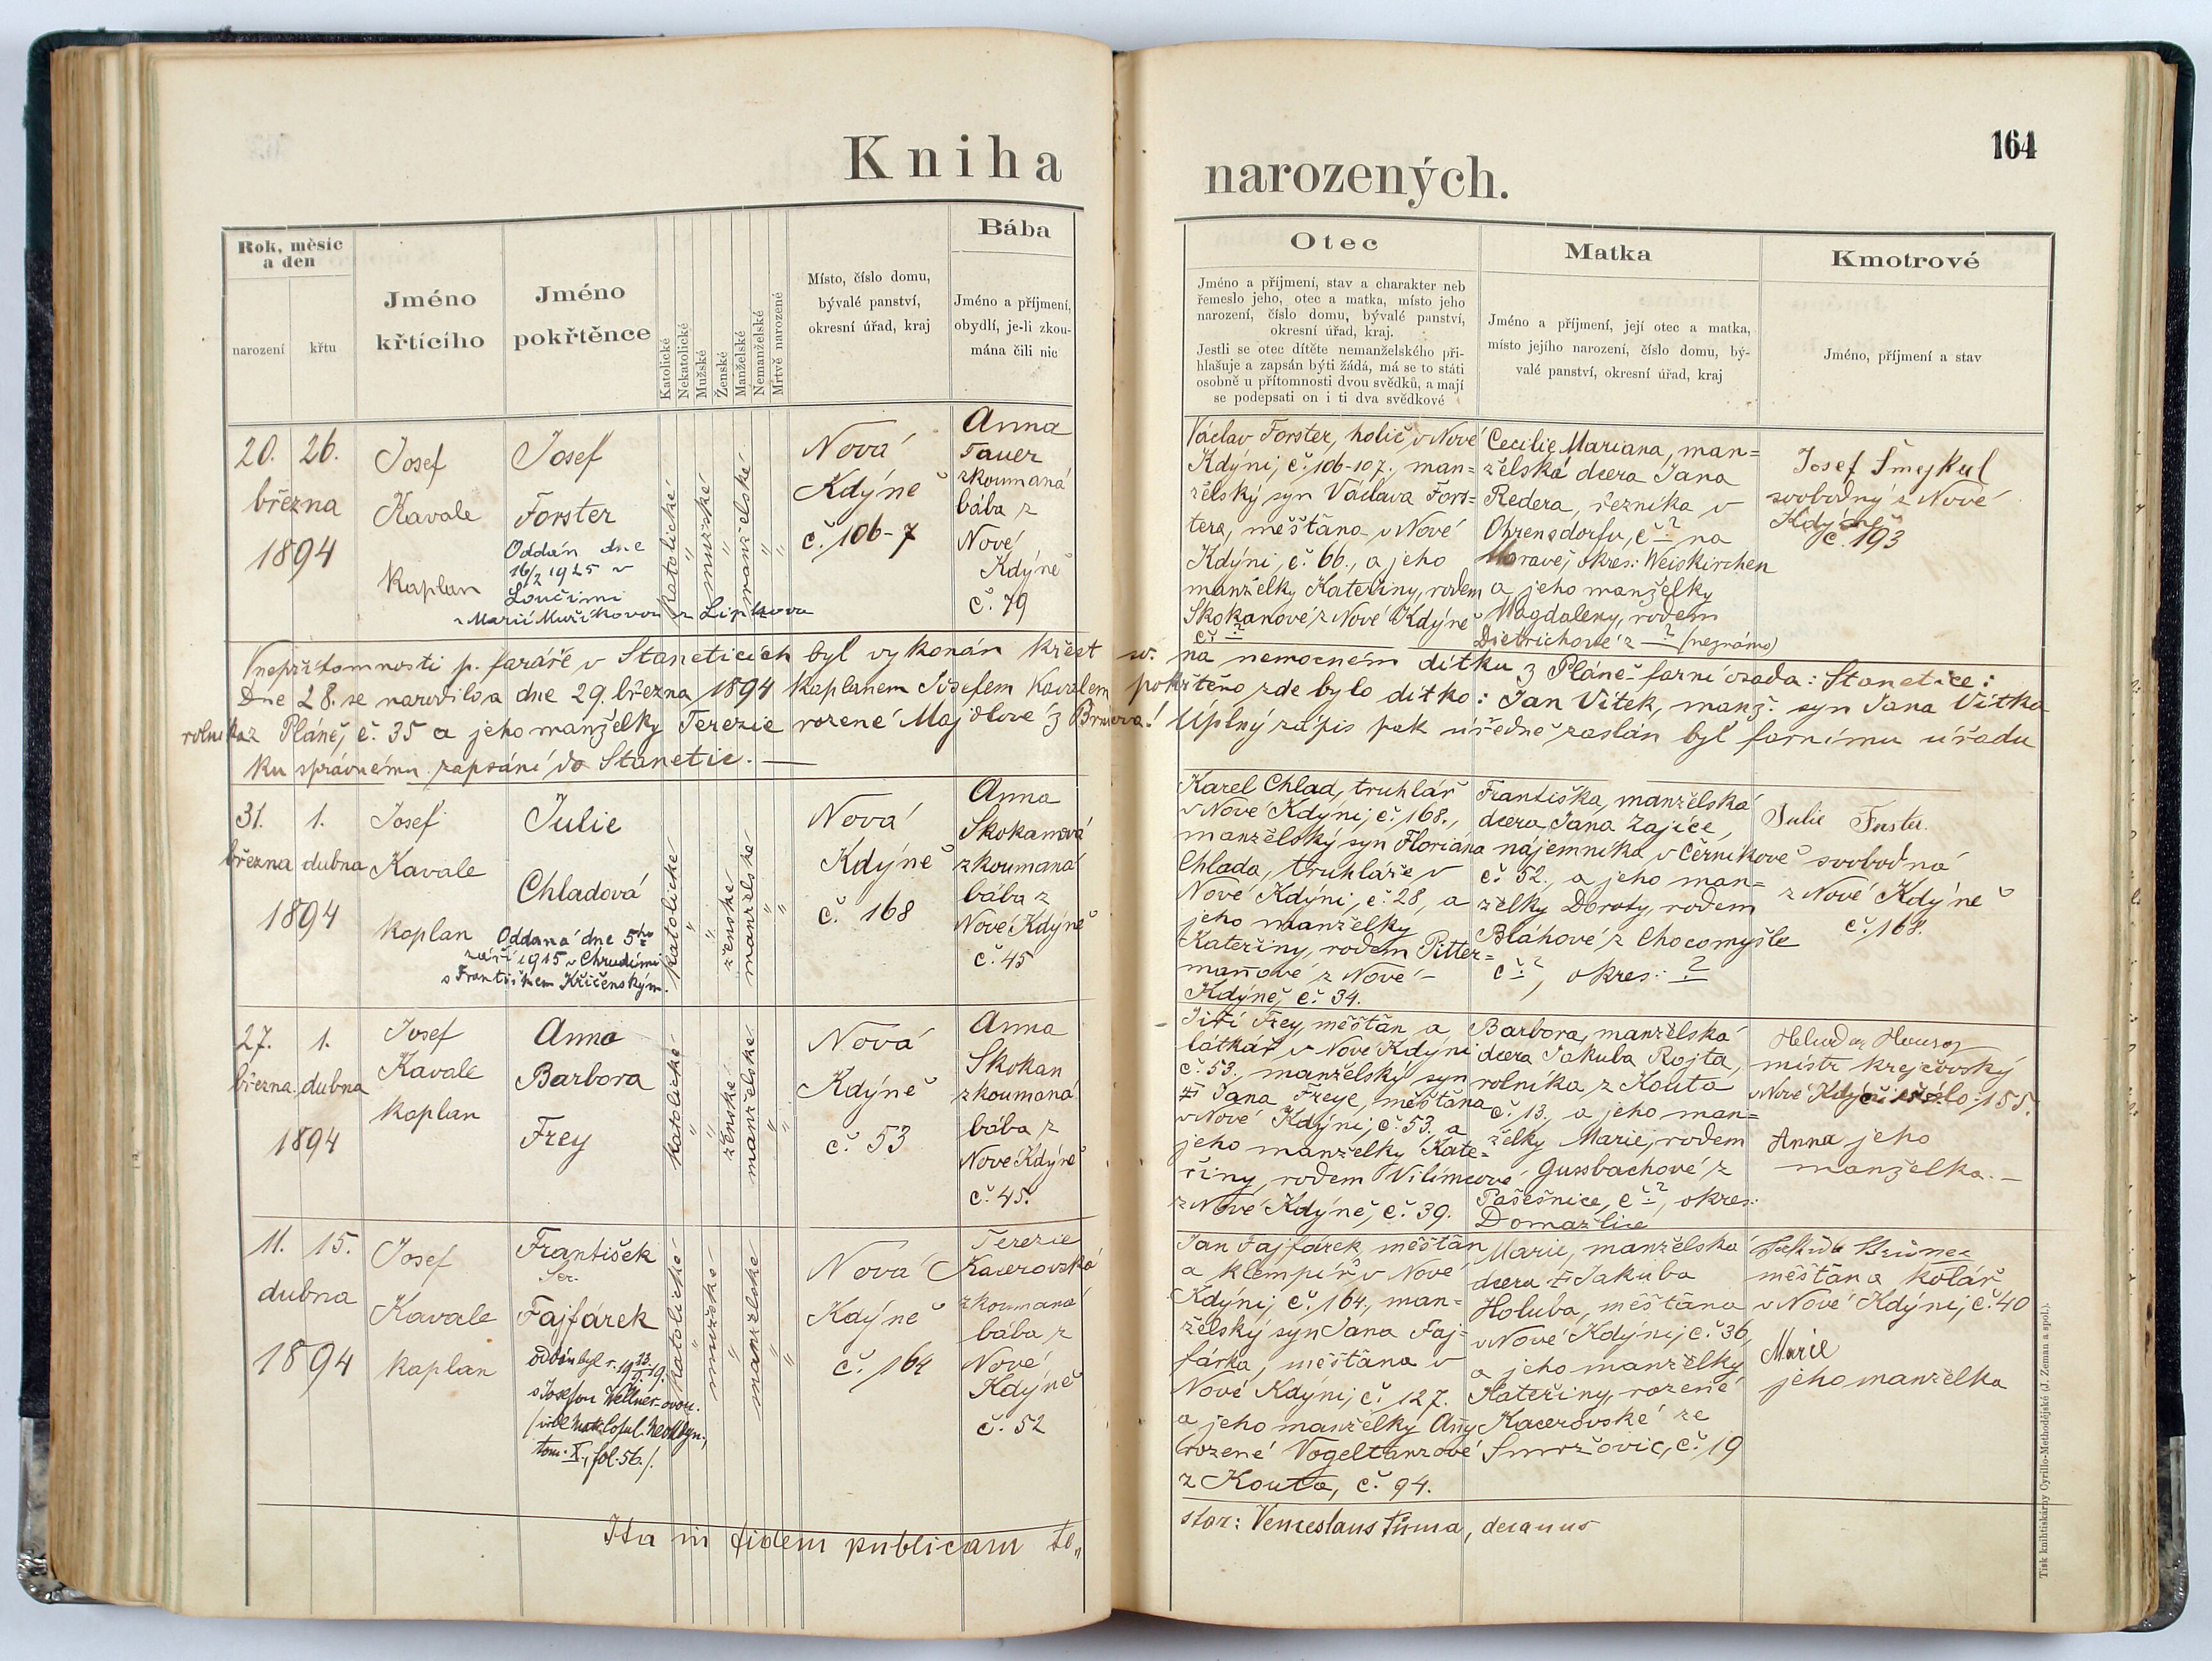 Kniha
narozených.
164
Rok, měsíc
a den
narození
křtu
Jméno
křtícího
Jméno
pokřtěnce
Katolické
Nekatolické
Mužské
Ženské
Manželské
Nemanželské
Mrtvě narozené
Místo, číslo domu,
bývalé panství,
okresní úřad, kraj
Bába
Jméno a příjmení,
obydlí, je-li zkou-
mána čili nic
Otec
Jméno a příjmení, stav a charakter neb
řemeslo jeho, otec a matka, místo jeho
narození, číslo domu, bývalé panství,
okresní úřad, kraj.
Jestli se otec dítěte nemanželského při-
hlašuje a zapsán býti žádá, má se to státi
osobně u přítomnosti dvou svědků, a mají
se podepsati on i ti dva svědkové
Matka
Jméno a příjmení, její otec a matka,
místo jejího narození, číslo domu, bý-
valé panství, okresní úřad, kraj
Kmotrové
Jméno, příjmení a stav
20. 26.
března
1894
Josef
Kavale
kaplan
Josef
Forster
Oddán dne
16/2 1925 v
Loučimi
s Marií Mužíkovou z Lipkova
katolické
"
mužské
"
manželské
"
"
Nová
Kdýně
č. 106-7
Anna
Tauer
zkoumaná
bába z
Nové
Kdýně
č. 79
Václav Forster, holič v Nové
Kdýni, č. 106-107., man=
želský syn Václava Fors=
tera, měšťana v Nové
Kdýni, č. 66., a jeho
manželky Kateřiny, rodem
Skokanové z Nové Kdýně
č. ?
Cecilie Mariana, man=
želská dcera Jana
Redera, řezníka v
Ohrensdorfu, č. ? na
Moravě, okres: Weiskirchen
a jeho manželky
Magdaleny, rodem
Dietrichové z ? (neznámo)
Josef Šmejkal
svobodný z Nové
Kdýně
č. 193
V nepřítomnosti p. faráře v Staneticích byl vykonán křest sv. na nemocném dítku z Pláně farní osada: Stanetice:
Dne 28. se narodilo a dne 29. března 1894 kaplanem Josefem Kavalem pokřtěno zde bylo dítko: Jan Vítek, manž. syn Jana Vítka
rolníka z Pláně, č. 35 a jeho manželky Terezie rozené Majdlové z ! Úplný zápis pak úředně zaslán byl farnímu úřadu
ku správnému zapsání do Stanetic.
31. 1.
března dubna
1894
Josef
Kavale
kaplan
Julie
Chladová
Oddaná dne 5ho
září 1915 v Chrudimi
s Františkem Křičenským.
katolické
"
"
ženské
manželské
"
"
Nová
Kdýně
č. 168
Anna
Skokanová
zkoumaná
bába z
Nové Kdýně
č. 45
Karel Chlad, truhlář
v Nové Kdýni, č. 168.,
manželský syn Floriána
Chlada, truhláře v
Nové Kdýni, č. 28, a
jeho manželky
Kateřiny, rodem Pitter=
manové z Nové
Kdýně, č. 34.
Františka, manželská
dcera Jana Zajíce,
nájemníka v Černíkově
č. 52., a jeho man=
želky Doroty, rodem
Bláhové z Chocomyšle
č. ?, okres: ?
Julie
svobodná
z Nové Kdýně
č. 168.
27. 1.
března dubna
1894
Josef
Kavale
kaplan
Anna
Barbora
Frey
katolické
"
"
ženské
manželské
"
"
Nová
Kdýně
č. 53
Anna
Skokan
zkoumaná
bába z
Nové Kdýně
č. 45.
Jiří Frey, měšťan a
látkář v Nové Kdýni
č. 53., manželský syn
† Jana Freye, měšťana
v Nové Kdýni, č. 53. a
jeho manželky Kate=
řiny, rodem Vilímcové
z Nové Kdýně, č. 39.
Barbora, manželská
dcera Jakuba Rojta,
rolníka z Kouta
č. 13, a jeho man=
želky Marie, rodem
Gussbachové z
Pašešnice, č. ?, okres:
Domažlice
mistr krejčovský
v Nové Kdýni číslo 155.
Anna jeho
manželka.
11. 15.
dubna
1894
Josef
Kavale
kaplan
František
Ser.
Fajfárek
oddán byl r. 1919.
s Josefou Wellner-ovou.
tom. X., fol. 56./.
katolické
"
mužské
"
manželské
"
"
Nová
Kdýně
č. 164
Terezie
Kacerovská
zkoumaná
bába z
Nové
Kdýně
č. 52
Jan Fajfárek, měšťan
a klempíř v Nové
Kdýni, č. 164., man=
želský syn Jana Faj=
fárka, měšťana v
Nové Kdýni, č. 127.
a jeho manželky Anny
rozené Vogeltanzové
z Kouta, č. 94.
Marie, manželská
dcera † Jakuba
Holuba, měšťana
v Nové Kdýni, č. 36,
a jeho manželky
Kateřiny, rozené
Kacerovské ze
Smržovic, č. 19
měšťan a kolář
v Nové Kdýni, č. 40
Marie
jeho manželka
Ita in fidem publicam te„
stor: Venceslaus Tůma, decanus
Tisk knihtiskárny Cyrillo-Methodějské (J. Zeman a spol.).